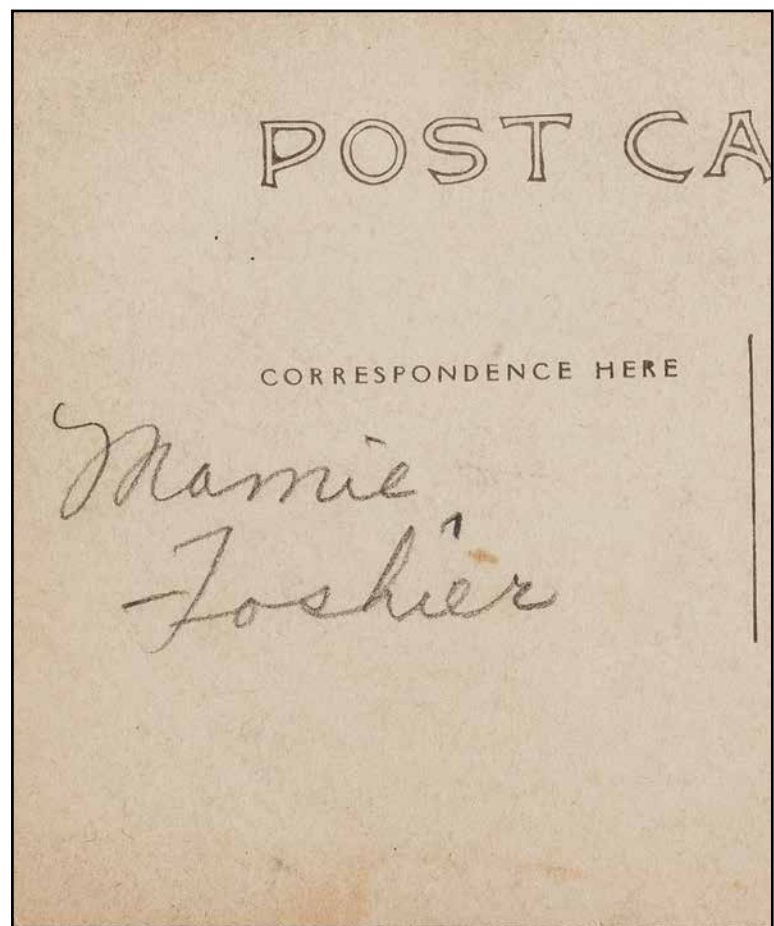 POST CA
CORRESPONDENCE HERE
Mamie
Foshier